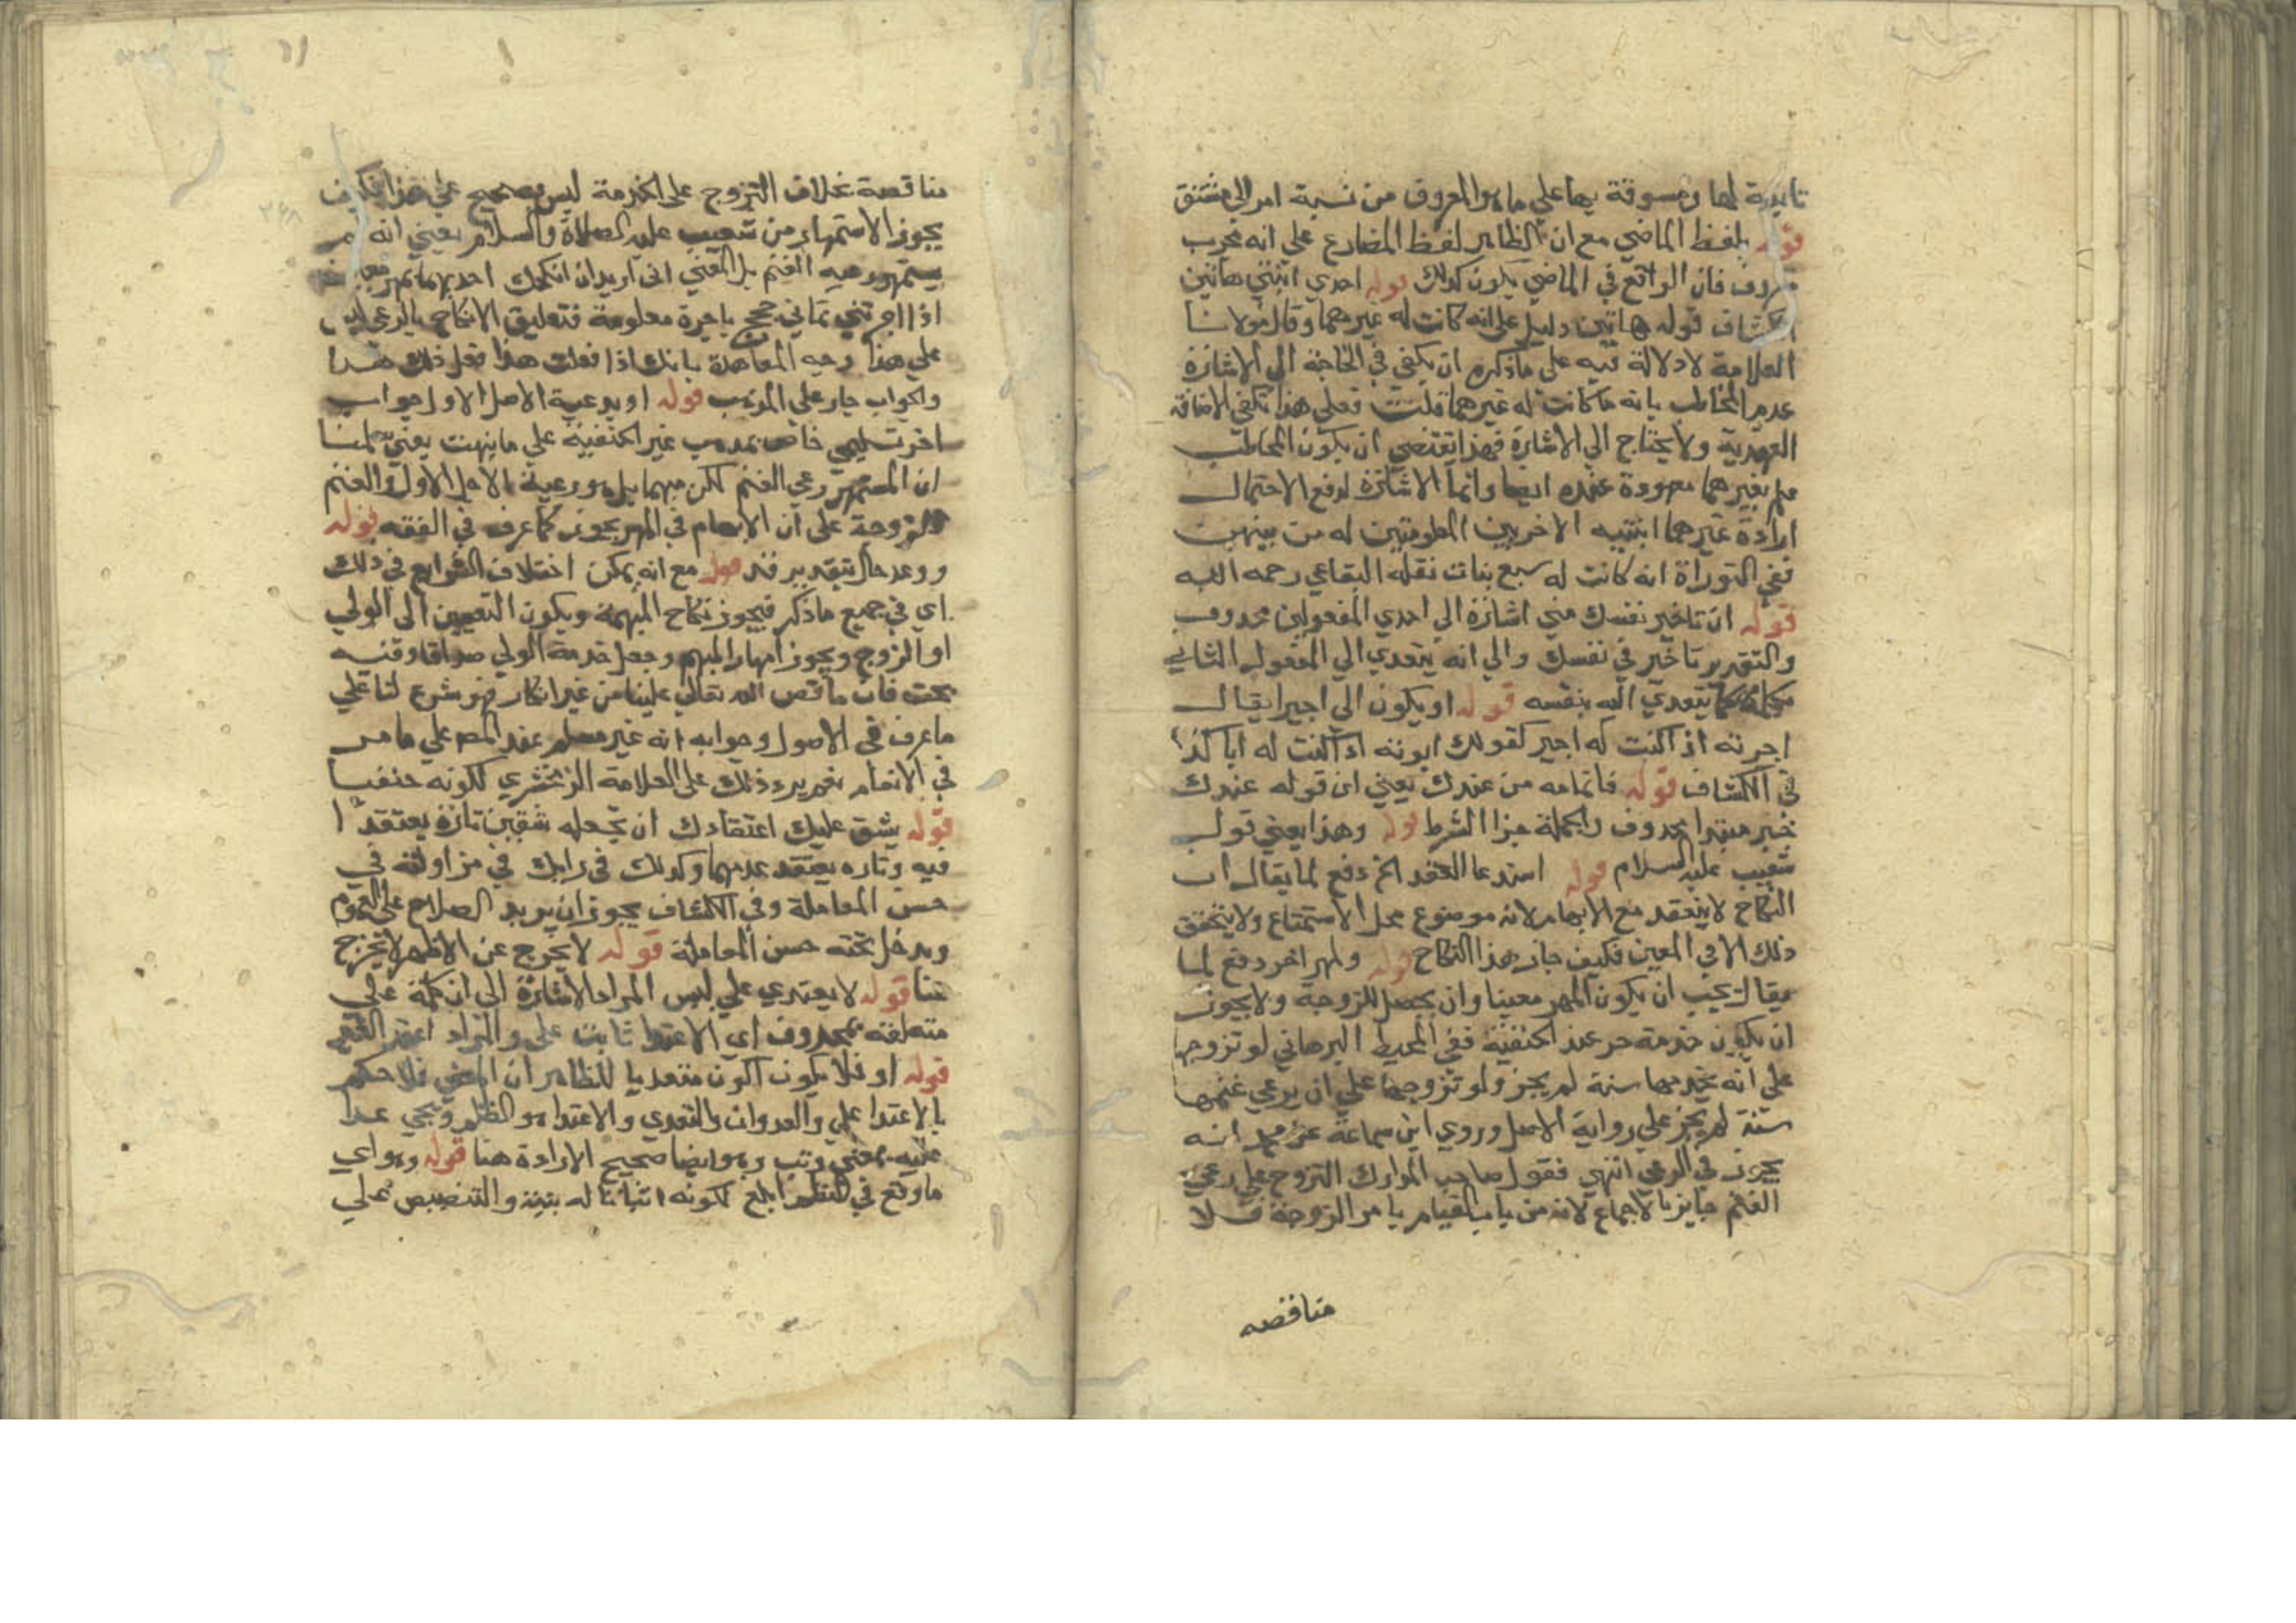 تابعة لها ومسوقة بها على ما هو المعروف من نسبة امر الى مشتق
قوله بلفظ الماضي مع ان الظاهر لفظ المضارع على انه مجرب
معروف فان الواقع في الماضي يكون كذلك قوله احدي ابنتي هاتين
الكشاف قوله هاتين دليل على انه كانت له غيرهما وقال مولانا
العلامة لا دلالة فيه على ما ذكره ان يكفي في الحاجة الى الاشارة
عدم المخاطب بانه ما كانت له غيرهما قلت فعلى هذا تكفي الاضافة
العهدية ولا يحتاج الي الاشارة فهذا يقتضي ان يكون المخاطب
بغيرهما معهودة عنده ايضا وانما الاشارة لدفع الاحتمال
ارادة غيرهما ابنتيه الاخريين المعلومتين له من بينهن
ففي التوراة انه كانت له سبع بنات نقله البقاعي رحمه الله
قوله ان تاجير نفسك مني اشارة الي احدي المفعولين محذوف
والتقدير تاجرني نفسك والي انه يتعدي الي المفعول الثاني
كما يتعدي اليه بنفسه قوله او يكون الي اجيرا يقال
اجرته اذا كنت له اجير كقولك ابوته اذا كنت له ابا كذا
في الكشاف قوله فاتمامه من عندك يعني ان قوله عندك
خبر مبتدا محذوف والجملة جزا الشرط قوله وهذا يعني قول
شعيب عليه السلام قوله استدعا العقد الخ دفع لما يقال ان
النكاح لا ينعقد مع الابهام لانه موضوع محل الاستمتاع ولا يتحقق
ذلك الا في المعين فكيف جاز هذا النكاح قوله ولمهر اخر دفع لما
يقال يجب ان يكون المهر معينا وان يحصل للزوجة ولا يجوز
ان يكون خدمة حر عند الحنفية ففي المحيط البرهاني لو تزوجها
على انه يخدمها سنة لم يجز ولو تزوجها على ان يرعي غنمها
سنة لم يجز على رواية الاصل وروي ابن سماعة عن محمد انه
يجوز في الرعي انتهي فقول صاحب المدارك التزوج على رعي
الغنم جايز بالاجماع لانه من باب القيام بامر الزوجة فلا
مناقضه
مناقضة بخلاف التزوج على الخدمة ليس بصحيح على هذا فكيف
يجوز الاستمهار من شعيب عليه الصلاة والسلام يعني انه لم
يستمهر رعيه الغنم بل المعني اني اريد ان انكحك احديهما بمهر
اذا اجرتني ثماني حجج باجرة معلومة فتعليق الانكاح بالرعي ليس
على هذا وجه المعاهدة بانك اذا فعلت هذا فعل ذلك هذا
والجواب جار على المذهب قوله او برعية الاصل الاول جواب
اخر تسليمي خاص بمذهب غير الحنفية على ما بينت يعني سلمنا
ان المستمهر رعي الغنم لكن مبهما بل هو رعية الاجل الاول والغنم
للزوجة على ان الابهام في المهر يجوز كما عرف في الفقه قوله
ووعد حال بتقدير قد قوله مع انه يمكن اختلاف الشرايع في ذلك
اي في جميع ما ذكر فيجوز نكاح المبهمة ويكون التعيين الى الولي
او الزوج ويجوز امهار المبهم وجعل خدمة الولي صداقا وفيه
بحث فان ما قص الله تعالي علينا من غير انكار فهو شرع لنا على
ما عرف في الاصول وجوابه انه غير مسلم عند المص على ما مر
في الانعام نعم يرد ذلك على العلامة الزمخشري لكونه حنفيا
قوله يشق عليك اعتقادك ان تجعله شقين تارة يعتقد
فيه وتاره يعتقد عدمهما وكذلك في رايك في مزاولته في
حسن المعاملة وفي الكشاف يجوز ان يريد الصلاح على العموم
ويدخل تحته حسن المعاملة قوله لا يخرج عن الاظهر لا تخرج
عنا قوله لا يعتدي علي ليس المراد الاشارة الى ان كلمة علي
متعلقه بمحذوف اي الاعتدا ثابت علي والمراد
قوله او فلا يكون اكون متعديا للظاهر ان المعني فلا حكم
بالاعتدا علي والعدوان والتعدي والاعتدا هو الظلم ويجي عدا
عليه بمعني وثب وهو ايضا صحيح الارادة هنا قوله وهو اي
ما وقع في النظم ابلغ لكونه اثباتا له ببينة والتنصيص على